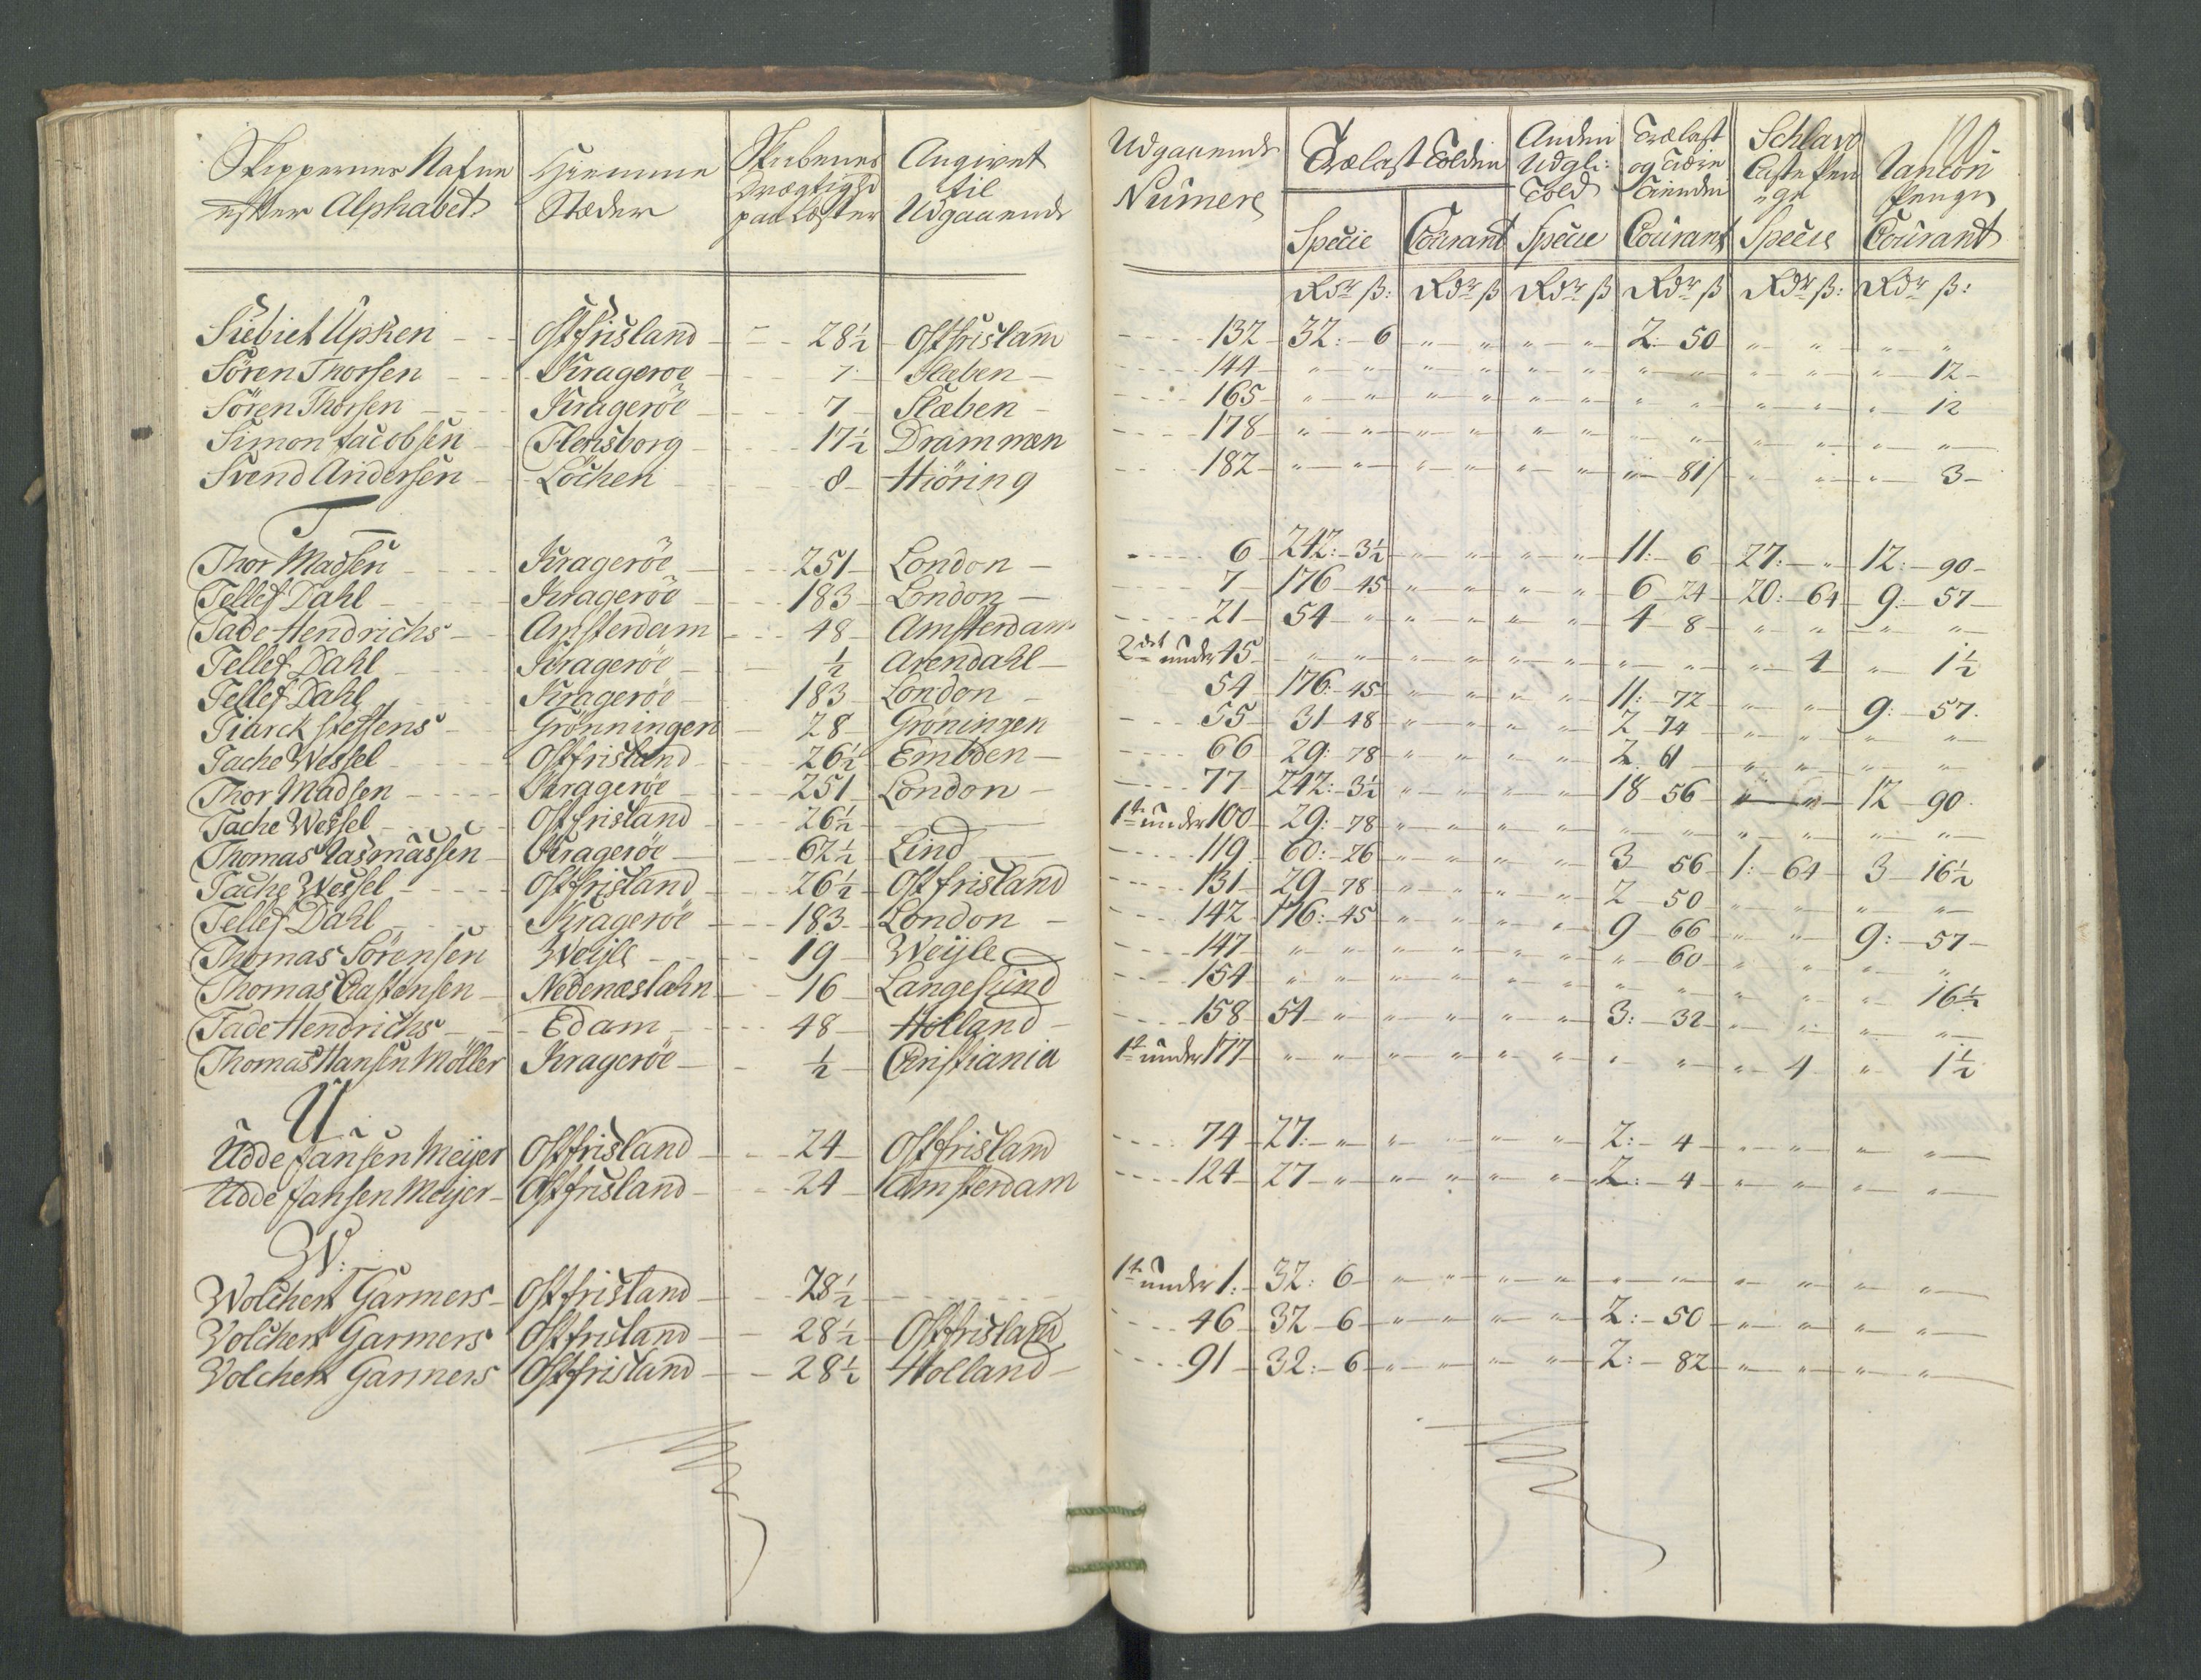 Skippernes Nafne efter Alphabet | Hiemme Stæder | Skibenes Drægtighd paa Læster | Angivet til Udgaaende | Udgaaende Numere | Trælast Tolden Specie | Courant | Anden Udgl: Told Specie | Trælast og Tiære Tienden Courant | Schlavo Casse Specie | Rancon Penge Courant
Rdr ß: | Rdr ß | Rdr ß | Rdr ß | Rdr ß: | Rdr ß:
Siebiet Upken | Ostfrisland | 28½ | Ostfrislann | 132 | 32: 6 | " " | " " | 2: 50 | " " | " "
Sören Thorsen | Krageroe | 7 | Staben | 144 | " " | " " | " " | " " | " " | " 12
Sören Thorsen | Krageröe | 7 | Stæben | 165 | " " | " " | " " | " " | " " | " 12
Simon Jacobsen | Flensborg | 17½ | Drammen | 178 | " " | " " | " " | " " | " " | " "
Svend Andersen | Löcken | 8 | Hiöring | 182 | " " | " " | " " | " 81 | " " | " 3
T
Thor Madsen | Krageröe | 251 | London | 6 | 242: 3½ | " " | " " | 11: 6 | 27: " | 12: 90
Tellef Dahl | Krageröe | 183 | London | 7 | 176 45 | " " | " " | 6 24 | 20: 64 | 9: 57
Tade Hendrichs | Amsterdam | 48 | Amsterdam | 21 | 54 " | " " | " " | 4 8 | " " | " "
Tellef Dahl | Krageröe | ½ | Arendahl | 2det under 45 | " " | " " | " " | " " | " 4 | " 1½
Tellef Dahl | Krageröe | 183 | London | 54 | 176: 45 | " " | " " | 11: 72 | " " | 9: 57
Tiarck Steffens | Grönningen | 28 | Gröningen | 55 | 31 48 | " " | " " | 2 74 | " " | " "
Tache Wessel | Ostfrisland | 26½ | Embden | 66 | 29: 78 | " " | " " | 2 61 | " " | " "
Thor Madsen | Kragerøe | 251 | London | 77 | 242: 3½ | " " | " " | 18 56 | " " | 12 90
Tache Wessel | Ostfrisland | 26½ | 1te under 100 | 29: 78 | " " | " " | " " | " " | " "
Thomas Rasmussen | Krageröe | 62½ | Lind | 119 | 60: 26 | " " | " " | 3 56 | 1: 64 | 3 16½
Tache Wessel | Ostfrisland | 26½ | Ostfrisland | 131 | 29 78 | " " | " " | 2 50 | " " | " "
Tellef Dahl | Krageröe | 183 | London | 142 | 176: 45 | " " | " " | 9 66 | " " | 9: 57
Thomas Sörensen | Weijle | 19 | Weijle | 147 | " " | " " | " " | " 60 | " " | " "
Thomas Castensen | Nedenæslehn | 16 | Langesund | 154 | " " | " " | " " | " " | " " | " 16½
Tade Hendrichs | Edam | 48 | Holland | 158 | 54 " | " " | " " | 3: 32 | " " | " "
Thomas Hansen Möller | Krageröe | ½ | Christiania | 1te under 177 | " " | " " | " " | " " | " 4 | " 1½
U
Udde Jansen Meijer | Ostfrisland | 24 | Ostfrisland | 74 | 27: " | " " | " " | 2: 4 | " " | " "
Udde Jansen Meijer | Ostfrisland | 24 | Amsterdam | 124 | 27 " | " " | " " | 2: 4 | " " | " "
W:
Wolchert Garmers | Ostfrisland | 28½ | 1te under 1: | 32: 6 | " " | " " | " " | " " | " "
Volchert Garmers | Ostfrisland | 28½ | Ostfrisland | 46 | 32 6 | " " | " " | 2: 50 | " " | " "
Volchert Garmers | Ostfrisland | 28½ | Holland | 91 | 32: 6 | " " | " " | 2: 82 | " " | " "